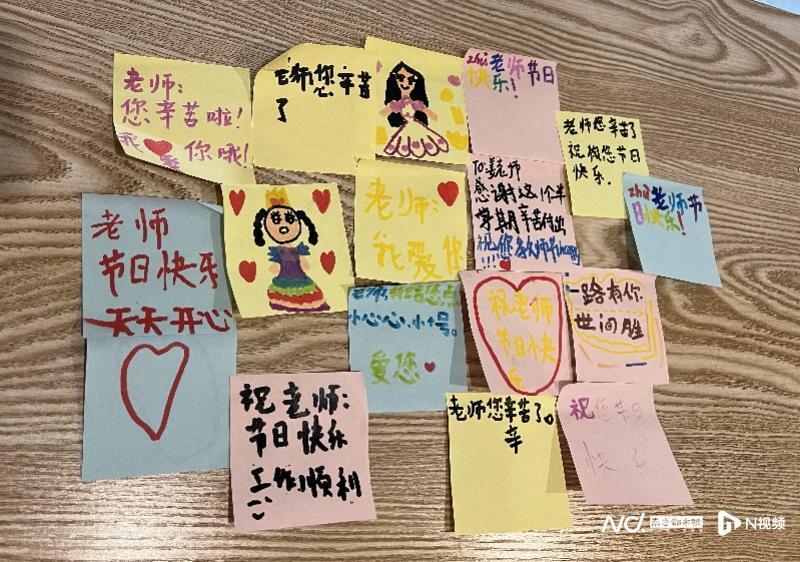 老师:
您辛苦啦!
我爱你哦!
老师您辛苦
了
zhù老师节日
快乐!
老师您辛苦了
祝您节日
快乐。
zhù老师节
日快乐!
老师
节日快乐
天天开心
老师:
我爱您
To姜老师
感谢这个半
学期辛苦付出
祝您教师节
!!!!
老师
小心心
爱您
祝老师
节日快
乐
一路有你
世间
祝老师:
节日快乐
工作顺利
老师您辛苦了。
辛
祝您节日
快乐
N视频